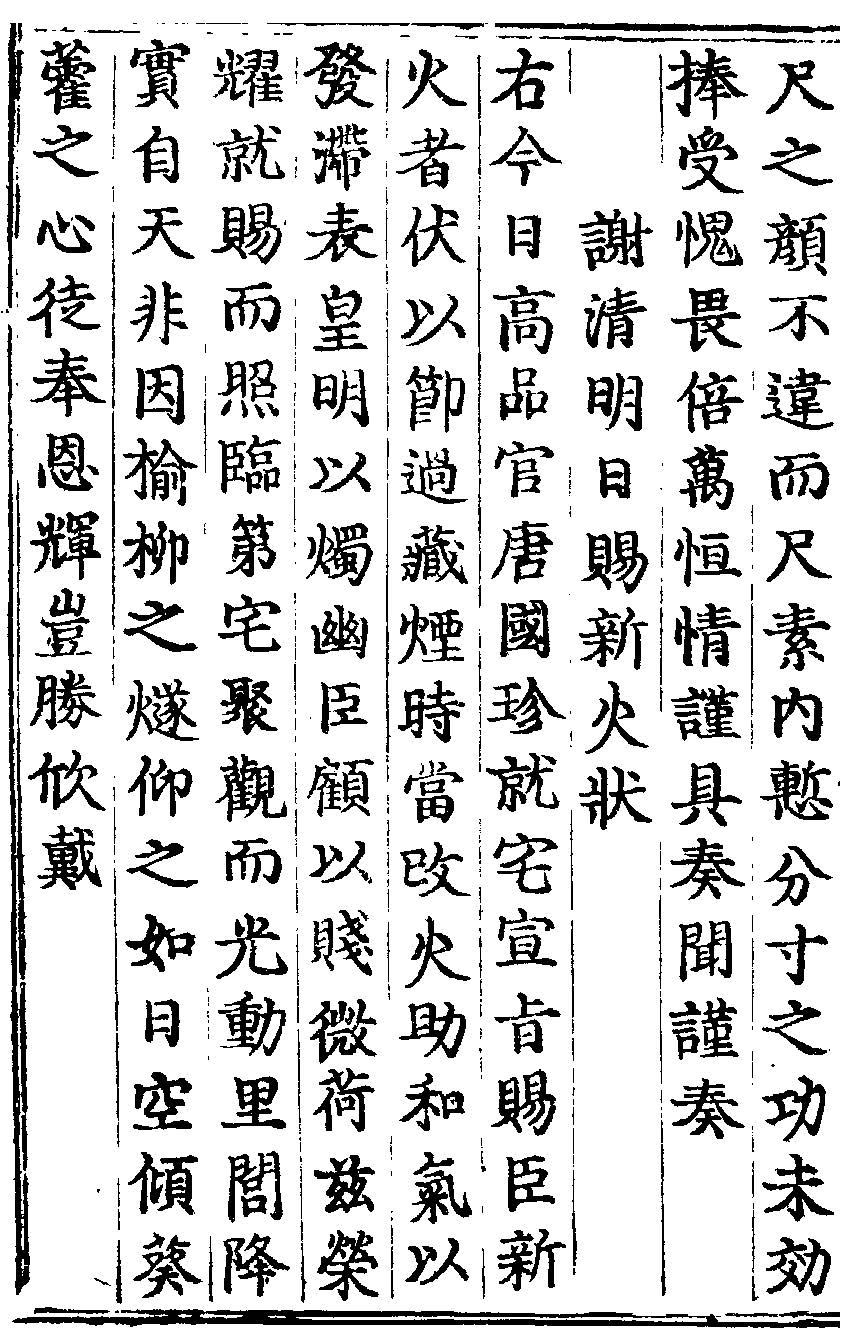 尺之顏不違而尺素內慙分寸之功未効
捧受愧畏倍萬恒情謹具奏聞謹奏
謝清明日賜新火狀
右今日高品官唐國珍就宅宣旨賜臣新
火者伏以節過藏煙時當改火助和氣以
發滯表皇明以燭幽臣顧以賤微荷茲榮
耀就賜而照臨第宅聚觀而光動里閭降
實自天非因榆柳之燧仰之如日空傾葵
藿之心徒奉恩輝豈勝欣戴